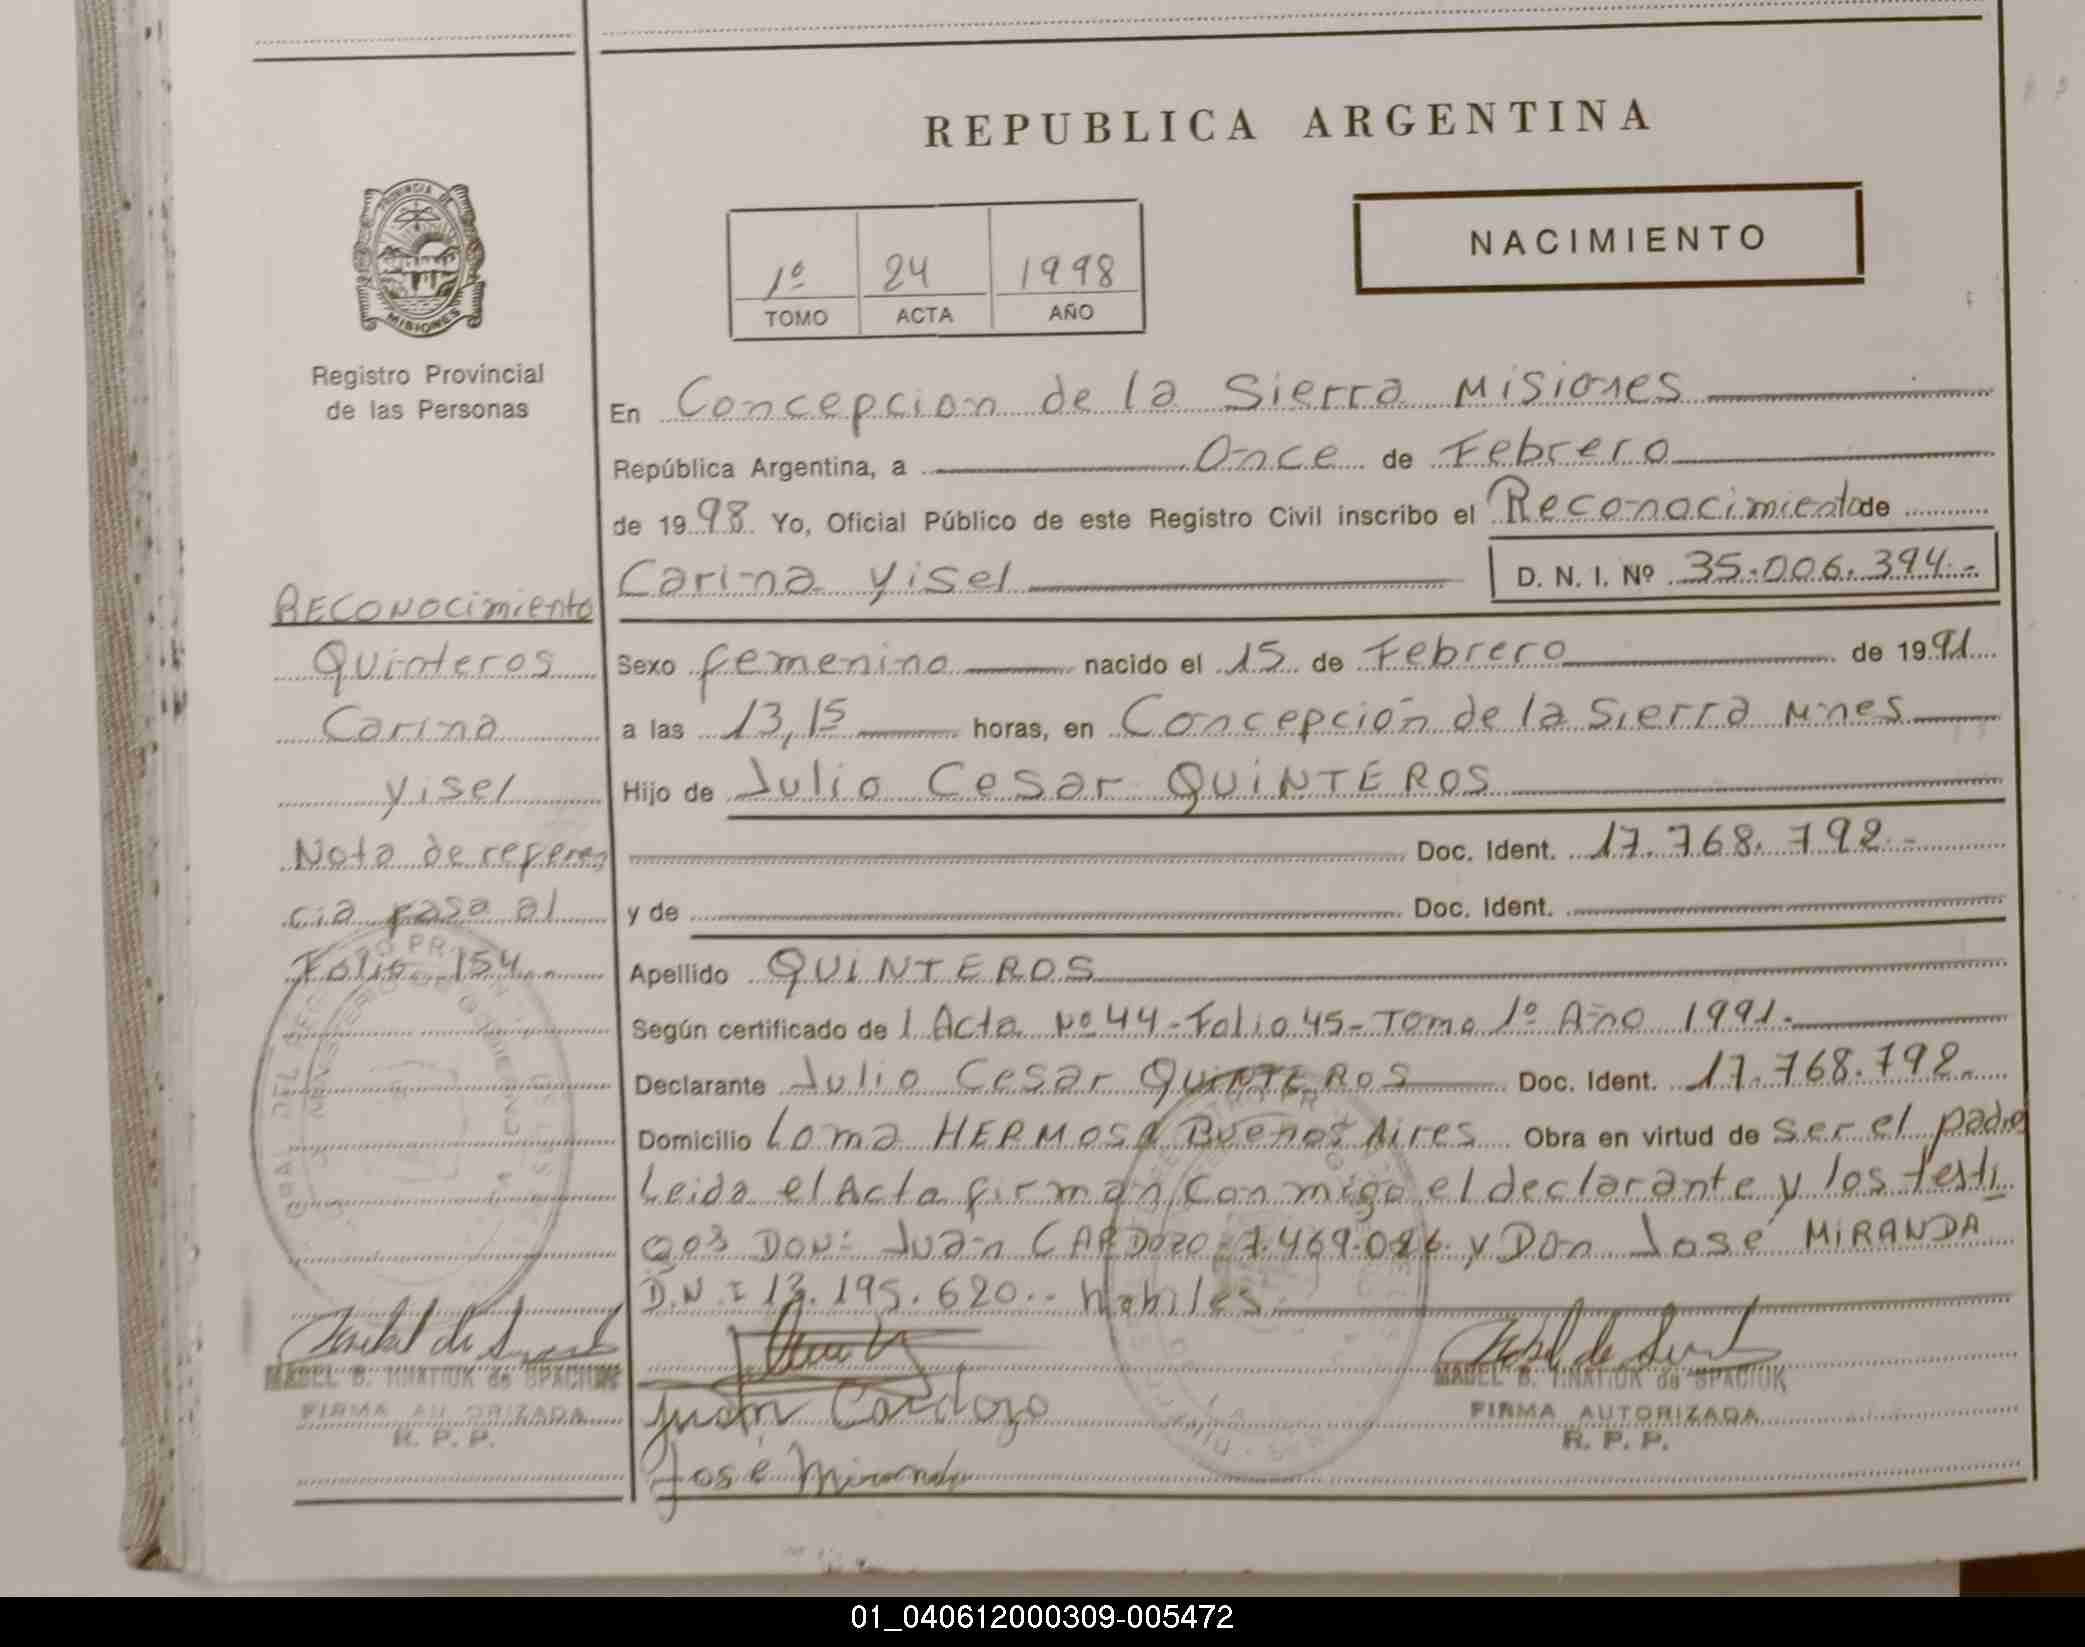 REPUBLICA ARGENTINA
NACIMIENTO
1º 24 1998
TOMO ACTA AÑO
PROVINCIA DE
MISIONES
Registro Provincial
de las Personas
RECONOCimiento
Quinteros
Carina
Yisel
Nota de referen
cia pasa al
Folio 154
MABEL B. HNATIUK de SPACIUK
FIRMA AUTORIZADA
R. P. P.
En Concepcion de la Sierra Misiones
República Argentina, a Once de Febrero
de 1998. Yo, Oficial Público de este Registro Civil inscribo el Reconocimiento de
Carina Yisel D. N. I. Nº 35.006.394.-
Sexo femenino nacido el 15 de Febrero de 1991
a las 13,15 horas, en Concepción de la Sierra Mnes
Hijo de Julio Cesar QUiNTEROS
Doc. Ident. 17.768.792.-
y de Doc. Ident.
Apellido QUINTEROS
Según certificado de l Acta Nº 44-Folio 45-Tomo 1º Año 1991.-
Declarante Julio Cesar QUINTEROS Doc. Ident. 17.768.792.-
Domicilio Loma HERMOSA Buenos Aires Obra en virtud de ser el padre
Leida el Acta firman conmigo el declarante y los testi
gos DON: Juan CARDOZO y Don José MIRANDA
D.N.I 13.195.620.- habiles.
Juan Cardozo
José Miranda
MABEL B. HNATIUK de SPACIUK
FIRMA AUTORIZADA
R. P. P.
01_040612000309-005472